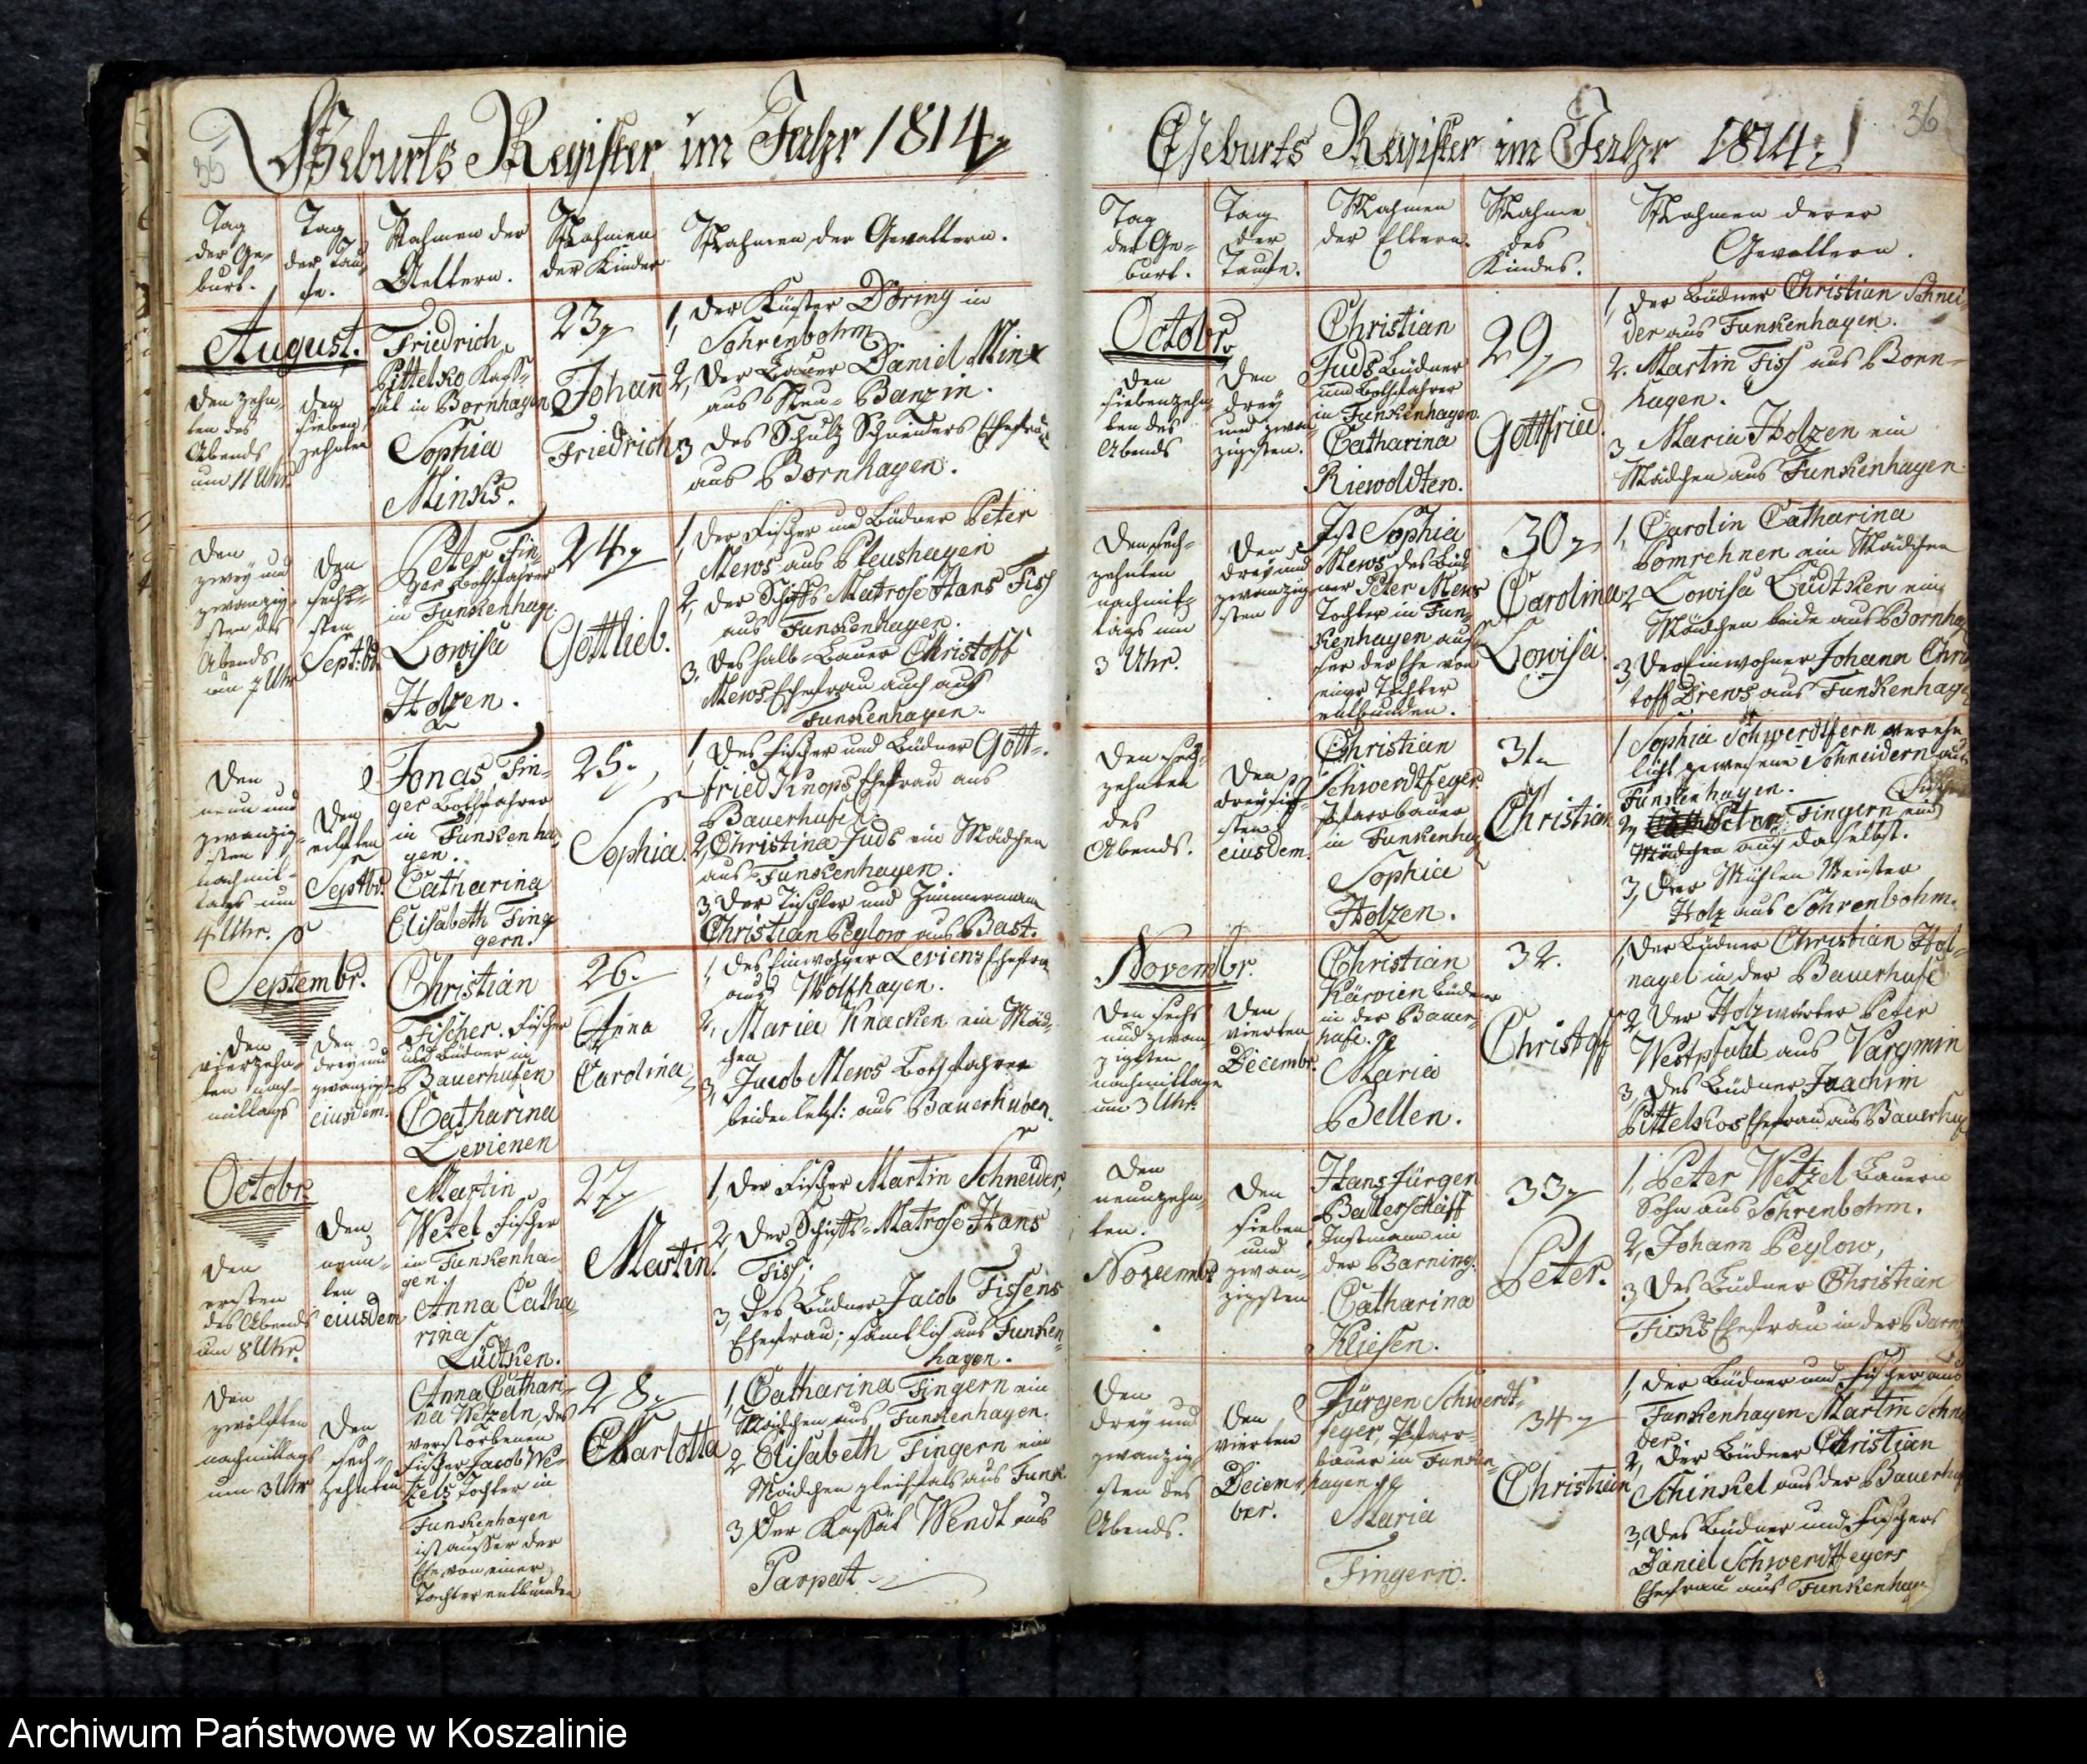 35
Geburts Register im Jahr 1814
Tag
der Ge-
burt.
Tag
der Tau-
fe.
Nahmen der
Aeltern.
Nahmen
der Kinder
Nahmen der Gevattern.
August.
den zehn-
ten des
Abends
um 11 Uhr
den
sieben
zehnten
Friedrich
Pittelko Koss-
in Bornhagen
Sophia
Minks.
23,
Johann
Friedrich
1, Der Küster Döring in
Sohrenbohm
2, Der Bauer Daniel Minx
aus Neu-Banzin.
3 des Schulz Schneiders Ehefrau
aus Bornhagen.
den
zwey und
zwanzig-
sten des
Abends
um 7 Uhr
den
sechs-
ten
Septbr.
Peter Fin-
ger Bothfahrer
in Funkenhage.
Lowisa
Holzen.
24,
Gottlieb.
1, der Fischer und Büdner Peter
Mews aus Pleushagen
2, der Schiffs Matrose Hans Fiss
aus Funkenhagen.
3, des halb-Bauer Christoff
Mews Ehefrau auch aus
Funkenhagen.
den
neun und
zwanzig-
sten
nachmit-
tags um
4 Uhr.
den
eilften
Septbr.
Jonas Fin-
ger Bothfahrer
in Funkenha-
gen.
Catharina
Elisabeth Fin-
gern.
25.
Sophia.
1 des Fischer und Büdner Gott-
fried Knops Ehefrau aus
Bauerhufen.
2, Christina Juds ein Mädchen
aus Funkenhagen.
3 der Tischler und Zimmermann
Christian Peylow aus Bast.
Septembr.
den
vierzehn-
ten nach-
mittags
den
drey und
zwanzigsten
eiusdem.
Christian
Fischer. Fischer
und Büdner in
Bauerhufen
Catharina
Levienen
26.
Anna
Carolina
1, des Einwohner Leviens Ehefrau
aus Wolfhagen.
2, Maria Knacken ein Mäd-
chen
3, Jacob Mews Bothfahrer
beiden letzt: aus Bauerhuben.
Octobr.
den
ersten
des Abends
um 8 Uhr.
den
neun-
ten
eiusdem
Martin
Wetzel Fischer
in Funkenha-
gen.
Anna Catha-
rina
Lüdtken.
27,
Martin.
1, der Fischer Martin Schneider,
2, der Schiffs-Matrose Hans
Fiss;
3, des Büdner Jacob Fissens
Ehefrau; sämtlich aus Funken-
hagen.
den
zwölften
nachmittags
um 3 Uhr
den
sech-
zehnten
Anna Cathari-
na Wetzeln, des
verstorbenen
Fischer Jacob We-
tzels Tochter in
Funkenhagen
ist ausser der
Ehe von einer
Tochter entbunden
28,
Charlotta
1, Catharina Fingern ein
Mädchen aus Funkenhagen.
2 Elisabeth Fingern ein
Mädchen gleichfals aus Funk
3 der Kossät Wendt aus
Parpat
36
Geburts Register im Jahr 1814.
Tag
der Ge-
burt.
Tag
der
Taufe.
Nahmen
der Eltern.
Nahme
des
Kindes.
Nahmen derer
Gevattern.
Octobr.
den
siebenzehn-
ten des
Abends
den
drey
und zwan-
zigsten.
Christian
Juds Büdner
und Bothfahrer
in Funkenhagen.
Catharina
Riewoldten.
29,
Gottfried.
1, der Büdner Christian Schnei-
der aus Funkenhagen.
2. Martin Fiss aus Born-
hagen.
3 Maria Holzen ein
Mädchen aus Funkenhagen
den sech-
zehnten
nachmit-
tags um
3 Uhr.
den
drey und
zwanzig
sten
Ist Sophia
Mews des Büd-
ner Peter Mews
Tochter in Fun-
kenhagen aus-
ser der Ehe von
einer Tochter
entbunden.
30,
Carolina
Lowisa.
1, Carolin Catharina
Pomrehnen ein Mädchen
2 Lowisa Lüdtken ein
Mädchen beide aus Bornha
3, der Einwohner Johann Chri
toff Drews aus Funkenhage
den sech-
zehnten
des
Abends.
den
dreysig-
sten
eiusdem.
Christian
Schwerdtfeger
Pfarrbauer
in Funkenhag
Sophia
Holzen.
31
Christian
1 Sophia Schwerdtfern verehe-
licht gewesene Schneidern aus
Funkenhagen.
2, Peter Fingern
Mädchen auch daselbst.
3, der Mühlen Meister
Holz aus Sohrenbohm.
Novembr.
den sechs
und zwan-
zigsten
nachmittags
um 3 Uhr.
den
vierten
Decembr.
Christian
Kärvien Büdner
in der Bauer-
hufe.
Maria
Bellen.
32.
Christoff
1, der Büdner Christian Hol-
nagel in der Bauerhufe
2, der Holzwärter Peter
Westpfahl aus Vargmin
3, des Büdner Joachim
Pittelkos Ehefrau aus Bauerhuf
den
neunzehn-
ten.
Novembr
den
sieben
und
zwan-
zigsten
Hans Jürgen
Ballerschaff
Instmann in
der Barning.
Catharina
Kliesen.
33,
Peter.
1, Peter Wetzel Bauern
Sohn aus Sohrenbohm.
2, Johann Peylow,
3, des Büdner Christian
Ficks Ehefrau in der Barn
den
drey und
zwanzig-
sten des
Abends.
den
vierten
Decem-
ber.
Jürgen Schwerdt-
feger, Pfarr-
bauer in Funken-
hagen
Maria
Fingern.
34,
Christian
1, der Büdner und Fischer aus
Funkenhagen Martin Schnei
der.
2, der Büdner Christian
Schinkel aus der Bauerhuf
3, des Büdner und Fischers
Daniel Schwerdtfegers
Ehefrau aus Funkenhag
Archiwum Państwowe w Koszalinie